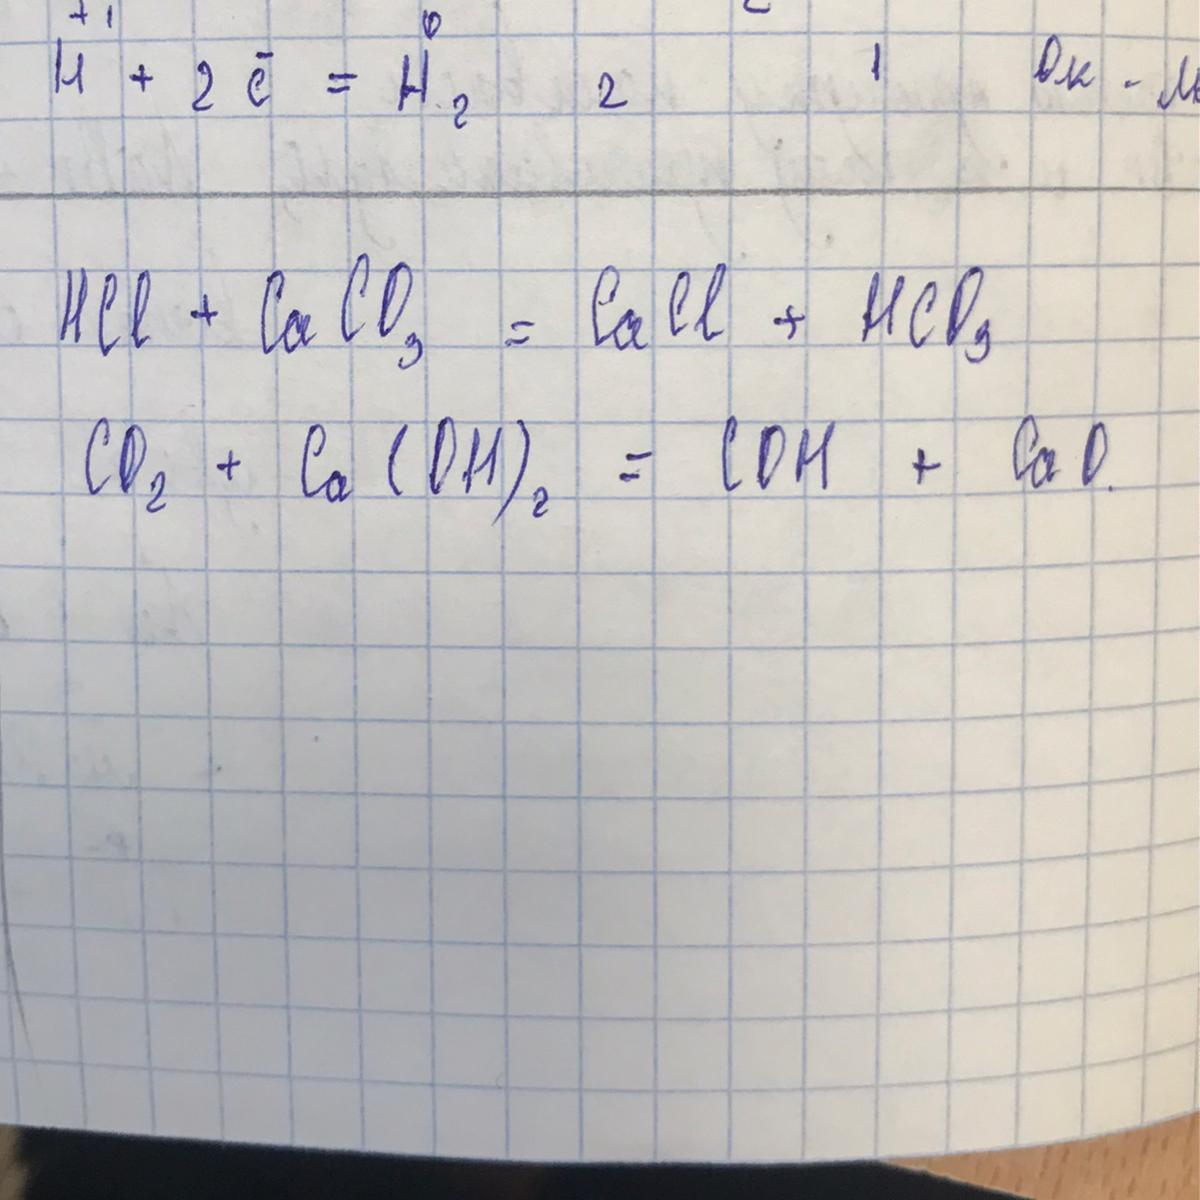 +1 0
H + 2 ē = H2 2 1 Ок -
HCl + CaCO3 = CaCl + HCO3
CO2 + Ca(OH)2 = COH + CaO.